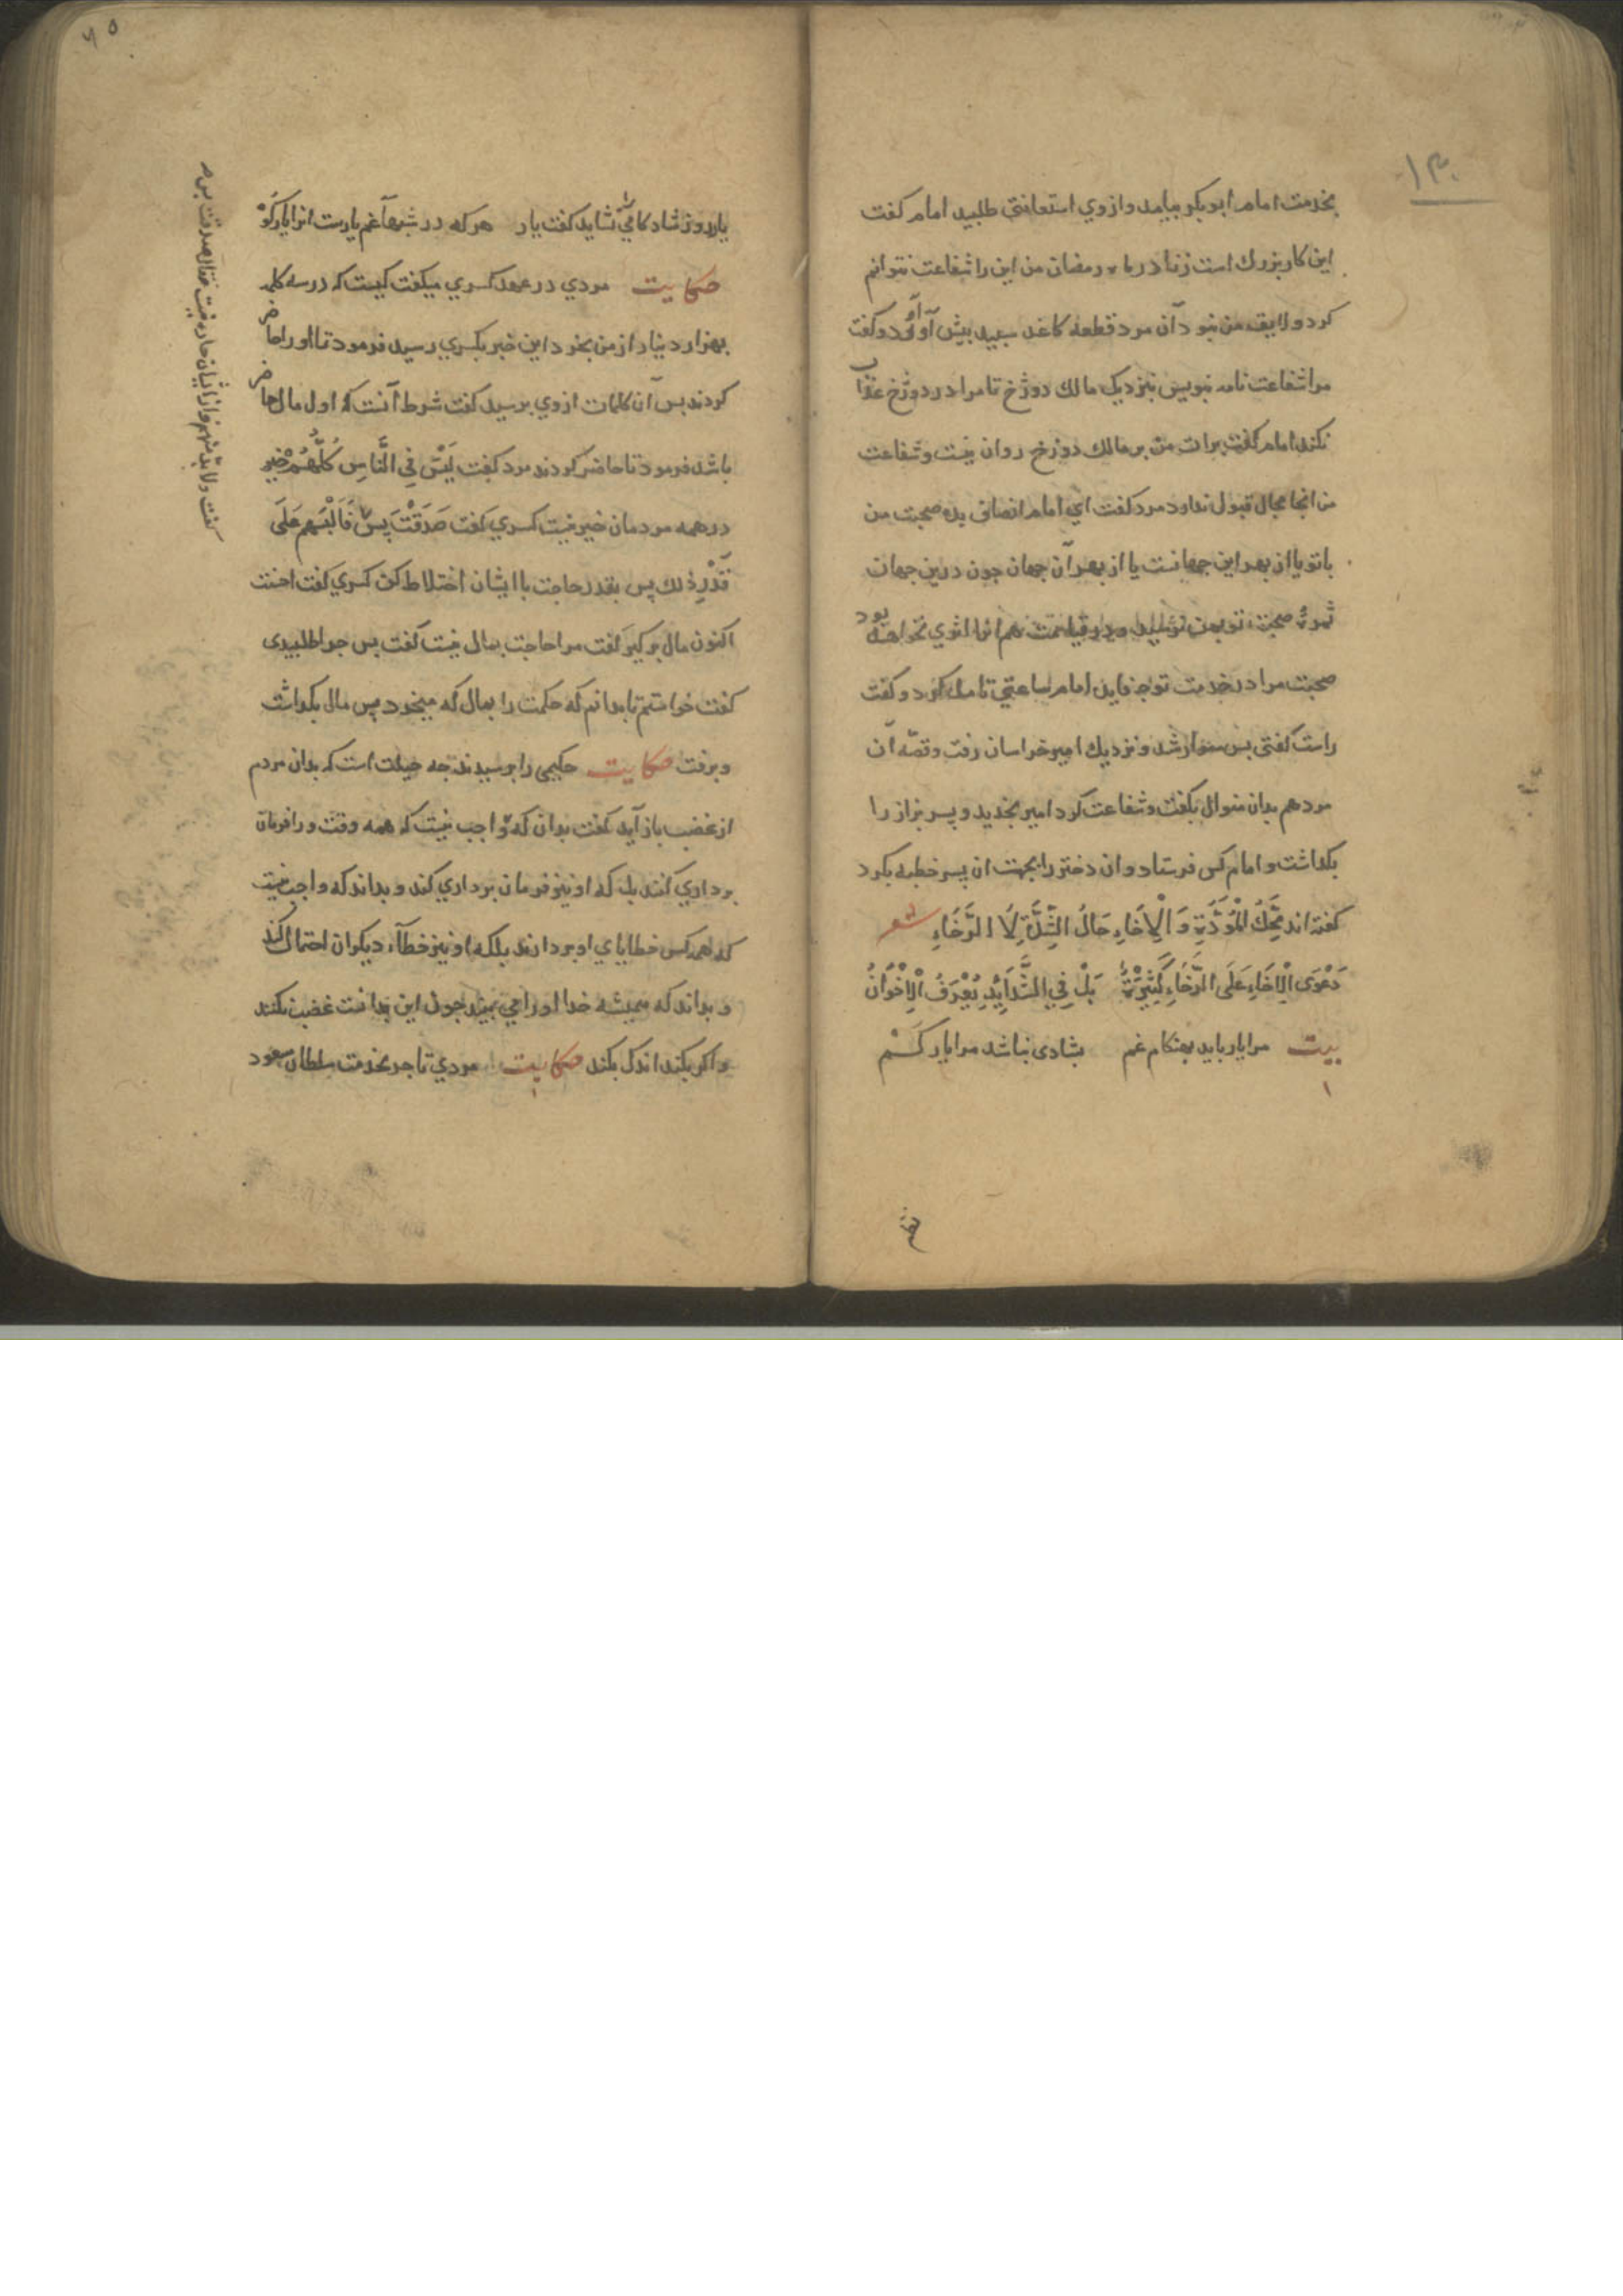 ۱۳۰
بخدمت امام ابوبکر بیامد و از وي استعانتي طلبید امام کفت
این کار بزرك است زنا در ماه رمضان من این را شفاعت نتوانم
کرد و لایق من نبود آن مرد قطعه کاغد سبید بیش آورد و کفت
مرا شفاعت نامه بنویس بنزدیك مالك دوزخ تا مرا در دوزخ عذاب
نکند امام کفت برات من بر مالك دوزخ روان نیست و شفاعت
من انجا مجال قبول ندارد مرد کفت اي امام انصافی بده صحبت من
با تو یا از بهر این جهانست یا از بهر آن جهان جون درین جهان
ثمرهٔ صحبت تو بمن نرسید و در قیامت هم انرا اثري نخواهد بود
صحبت مرا در خدمت تو جه فایده امام ساعتي تامل کرد و کفت
راست کفتی بس سوار شد و نزدیك امیر خراسان رفت و قصّه آن
مرد هم بدان منوال بکفت و شفاعت کرد امیر بخندید و پسر بزاز را
بکذاشت و امام کس فرستاد و ان دختر را بجهت ان پسر خطبه بکرد
کفته اند مِحَكُّ الْمَوَدَّةِ وَ الْاِخَاءِ حَالُ الشِّدَّةِ لَا الرَّخَاءِ شعر
دَعْوَى الْاِخَاءِ عَلَى الرَّخَاءِ كَثِيْرَةٌ بَلْ فِي الشَّدَايِدِ يُعْرَفُ الْاِخْوَانُ
بیت مرا یار باید بهنکام غم بشادی نباشد مرا یار کم
۶۵
یار روز شادکامي را نشاید کفت یار هرکه در شبهآ غم یارست انرا یار کو
حکایت مردي در عهد کسري میکفت کیست که در سه کلمه
بهزار دینار از من بخرد این خبر بکسري رسید فرمود تا او را حاضر
کردند بس آن کلمات از وي برسید کفت شرط آنست که اول مال حاضر
باشد فرمود تا حاضر کردند مرد کفت لَیْسَ فِي النَّاسِ کُلِّهُمْ خَیر
در همه مردمان خیر نیست کسري کفت صَدَقْتَ پس فَالْبَسهم عَلَی
قَدْرِ ذلك پس بقدر حاجت با ایشان اختلاط کن کسري کفت احسنت
اکنون مال بر کیر کفت مرا حاجت بمال نیست کفت پس جرا طلبیدی
کفت خواستم تا بدانم که حکمت را بمال که میخرد پس مال بکذاشت
و برفت حکایت حکیمی را برسیدند جه حیلت است که بدان مردم
از غضب باز آید کفت بدان که واجب نیست که همه وقت ورا فرمان
برداري کنند بل که او نیز فرمان برداري کند و بداند که واجب نیست
که همه کس خطایاي او بردارند بلکه او نیز خطآء دیکران احتمال کند
و بداند که همیشه خدا او را مي بیند جون این بدانست غضب نکند
و اکر بکند اندك بکند حکایت مردي تاجر بخدمت سلطان مسعود
کفت ولابدّ منهم و از ایشان جاره نیست فقال صدقت پس